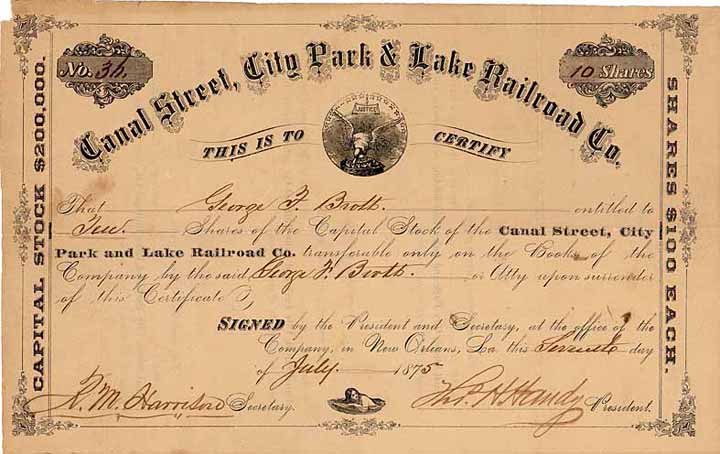 No. 36.
10 Shares
Canal Street, City Park & Lake Railroad Co.
JUSTICE
THIS IS TO CERTIFY
That George F. Brott. entitled to
Ten. Shares of the Capital Stock of the Canal Street, City
Park and Lake Railroad Co. transferable only on the Books of the
Company by the said George F. Brott. or Atty upon surrender
of this Certificate
SIGNED by the President and Secretary, at the office of the
Company, in New Orleans, La this Seventh day
of July 1875
R. M. Harrison Secretary.
H. Handy President.
CAPITAL STOCK $200,000.
SHARES $100 EACH.